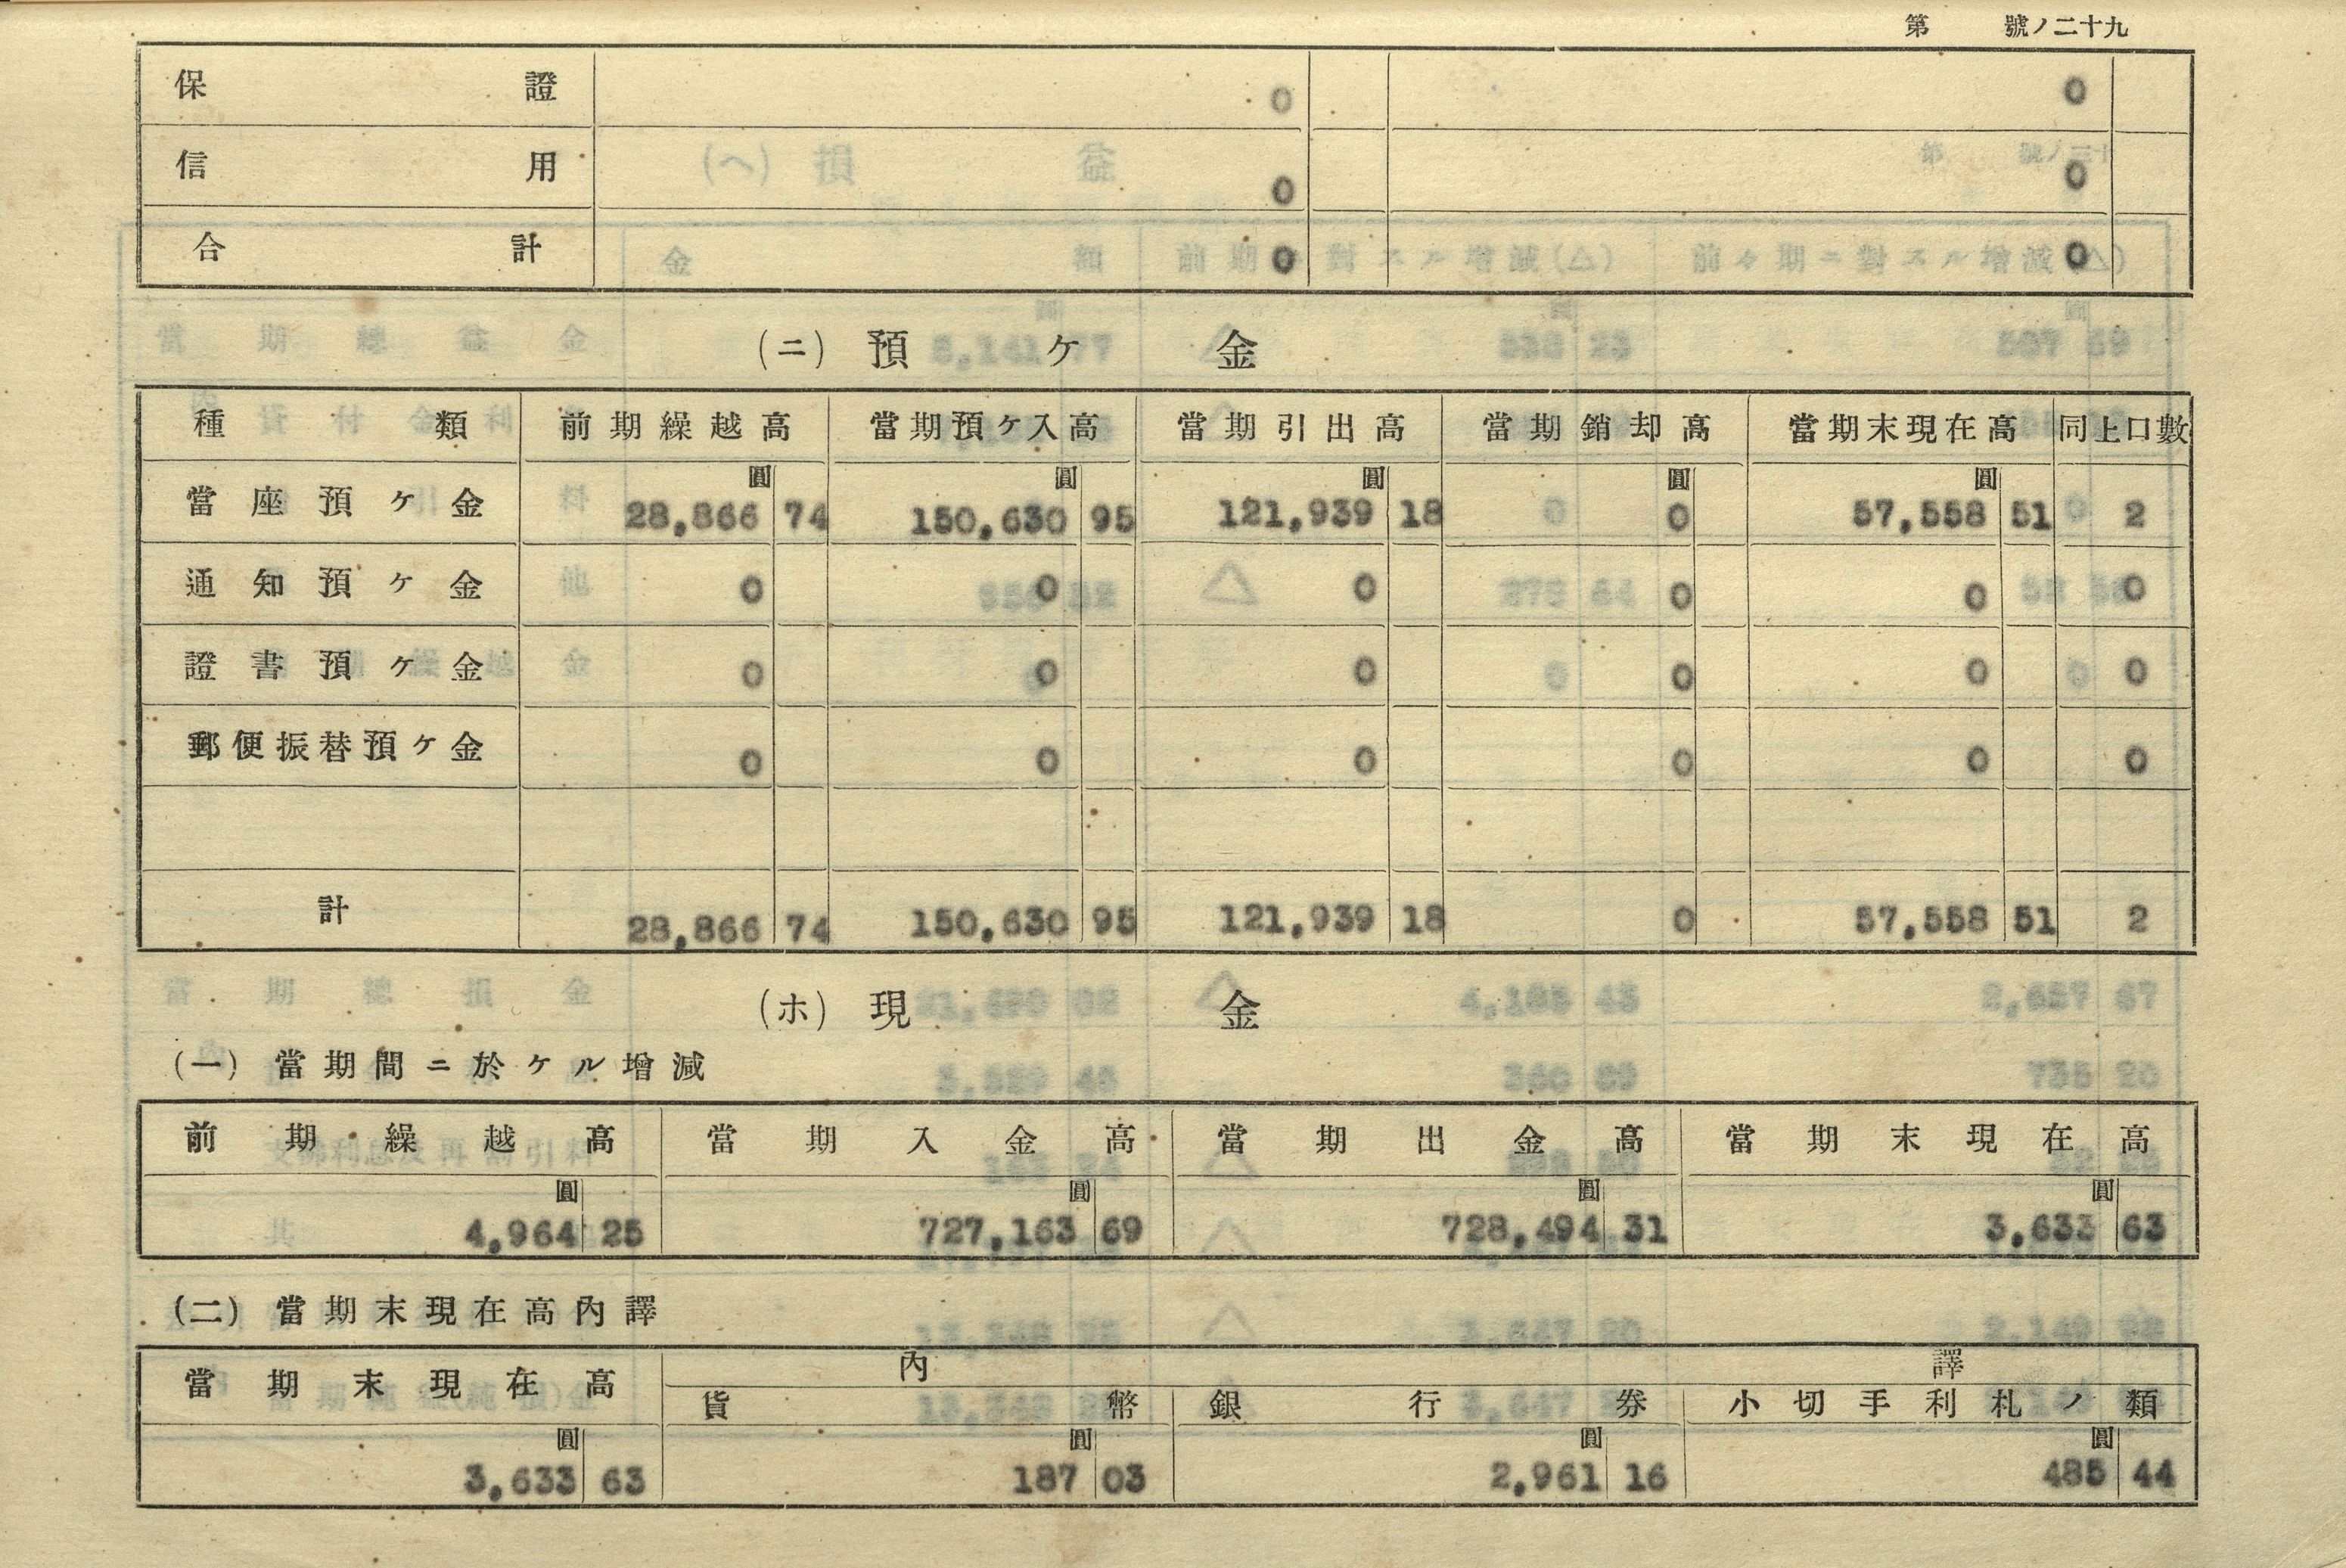 第 號ノ二十九
保證 0 0
信用 0 0
合計 0 0
(ニ) 預ケ金
種類 前期繰越高 當期預ケ入高 當期引出高 當期銷却高 當期末現在高 同上口數
圓 圓 圓 圓 圓
當座預ケ金 28,866 74 150,630 95 121,939 18 0 57,558 51 2
通知預ケ金 0 0 0 0 0 0
證書預ケ金 0 0 0 0 0 0
郵便振替預ケ金 0 0 0 0 0 0
計 28,866 74 150,630 95 121,939 18 0 57,558 51 2
(ホ) 現金
(一) 當期間ニ於ケル增減
前期繰越高 當期入金高 當期出金高 當期末現在高
圓 圓 圓 圓
4,964 25 727,163 69 728,494 31 3,633 63
(二) 當期末現在高內譯
當期末現在高 內譯
貨幣 銀行券 小切手利札ノ類
圓 圓 圓 圓
3,633 63 187 03 2,961 16 485 44